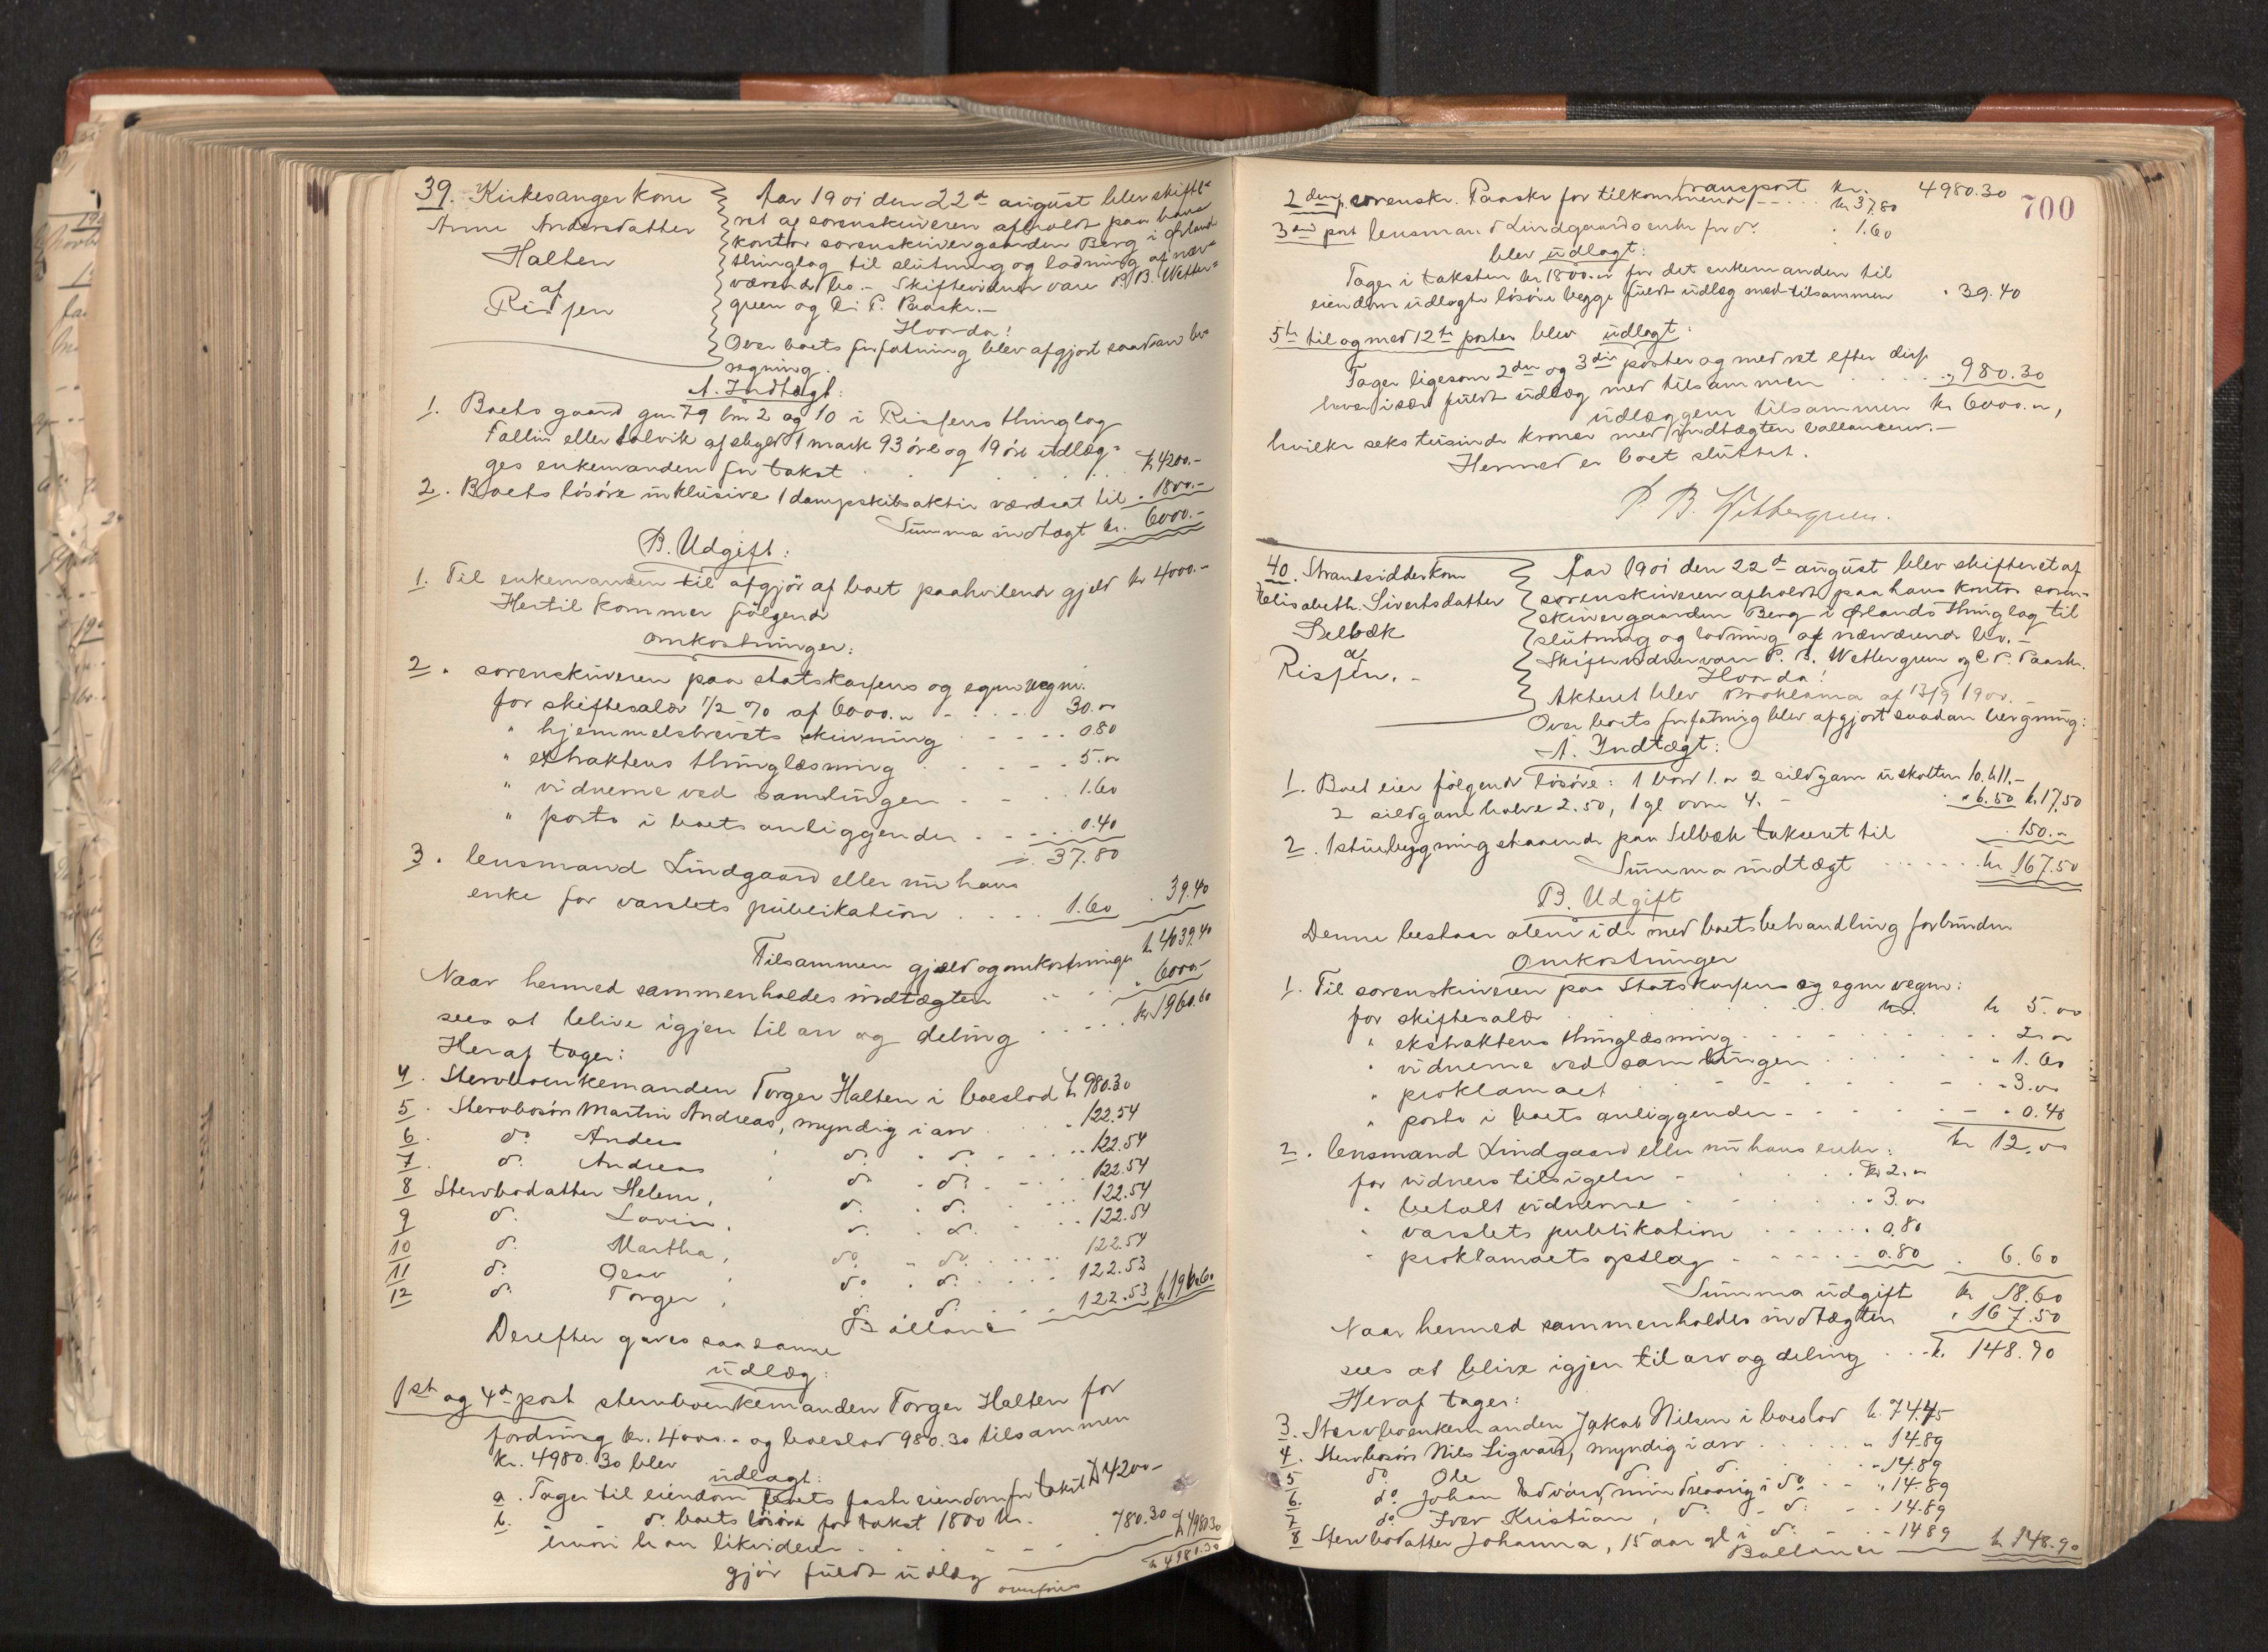 39. Kirkesangerkone
Anne Andersdatter
Halten
af
Risfjen
Aar 1901 den 22de august blev skifte-
ret af sorenskriveren afholdt paa hans
kontor sorenskrivergaarden Berg i Ørlands
thinglag til slutning og lodning af nær-
værende bo. - Skiftevidner vare P. B. Wetter-
green og C. P. Paaske. -
Hvorda!
Over boets forfatning blev afgjort saadan be-
regning.
A. Indtægt:
1. Boets gaard gnr 79 bnr 2 og 10 i Risfens thinglag
Fallin eller Dalvik af skyld 1 mark 93 øre og 19 øre udlæg-
ges enkemanden for takst . . . . kr 4200.-
2. Boets løsøre inklusive 1 dampskibsaktie værdsat til " 1800.-
Summa indtægt kr. 6000.-
B. Udgift:
1. Til enkemanden til afgjør af boet paahvilende gjeld kr 4000.-
Hertil kommer følgende
omkostninger:
2. sorenskriveren paa statskassens og egne vegne.
for skiftesalær 1/2 % af 6000." - . - 30."
" hjemmelsbrevets skrivning . - - - 0.80
" extraktens thinglæsning . - - - 5."
" vidnerne ved samlingen - - . 1.60
" porto i boets anliggender . - - . 0.40
37.80
3. lensmand Lindgaard eller nu hans
enke for varslets publikation . . . . 1.60 . 39.40
Tilsammen gjæld og omkostninger kr 4039.40
Naar hermed sammenholdes indtægten . . . " 6000.-
sees at blive igjen til arv og deling . . . . kr 1960.60
Heraf tager:
4. Stervboenkemanden Torger Halten i boeslod kr 980.30
5. Stervbosøn Martin Andreas, myndig i arv . . " 122.54
6. do. Anders " do. " do. - - - 122.54
7. do. Andreas " do. " do. - - - 122.54
8 Stervbodatter Helene, do. " do. . . . 122.54
9 do. Lovine, do. " do. . . 122.54
10 do. Martha, do. " do. . . . 122.54
11 do. Olav , do. " do. . . . 122.53
12 do. Torger , do. do. . . . 122.53 kr 1960.60
Ballance
Derefter gjøres saadanne
udlæg:
1ste og 4de post stervboenkemanden Torger Halten for
fordring kr. 4000.- og boeslod 980.30 tilsammen
kr. 4980.30 blev
udlagt:
a. Tager til eiendom boets faste eiendom for takst kr 4200-
b. " " do. boets løsøre for takst 1800 kr.
hvori han likviderer . . - - - 780.30 kr 4980.30
gjør fuldt udlæg
overføres kr 4980.30
700
transport kr. 4980.30
2den p. sorenskr. Paaske for tilkommende - - - - kr 37.80
3die post lensmand Lindgaards enke for do. . 1.60
blev udlagt:
Tager i taksten kr 1800." for det enkemanden til
eiendom udlagte løsøre begge fuldt udlæg med tilsammen " 39.40
5te til og med 12te poster blev udlagt:
Tager ligesom 2den og 3die poster og med ret efter disse
hver især fuldt udlæg med tilsammen . . . . . " 980.30
udlæggene tilsammen kr 6000.",
hvilke seks tusinde kroner med indtægten ballancerer. -
Hermed er boet sluttet.
P. B. Wettergreen.
40. Strandsidderkone
Elisabeth Sivertsdatter
Selbæk
af
Risfen. -
Aar 1901 den 22de august blev skifteret af
sorenskriveren afholdt paa hans kontor soren-
skrivergaarden Berg i Ørlands thinglag til
slutning og lodning af nærværende bo. -
Skiftevidner vare P. B. Wettergreen og C. P. Paaske.
Hvorda!
Akteret blev Proklama af 13/9 1900. -
Over boets forfatning blev afgjort saadan beregning:
A. Indtægt:
1. Boet eier følgende løsøre: 1 bord 1." 2 sildgarn uskatten 10. kr 11.-
2 sildgarn halve 2.50, 1 gl ovn 4. - " 6.50 kr 17.50
2. 1 stuebygning staaende paa Selbæk takseret til . 150."
Summa indtægt . . . . . kr 167.50
B. Udgift
Denne bestaar alene i de med boets behandling forbundne
Omkostninger
1. Til sorenskriveren paa Statskassens og egne vegne:
for skiftesalær . . . . . kr 5.00
" ekstraktens thinglæsning . - - - - 2."
" vidnerne ved samlingen . . . . " 1.60
" proklamaet . - - - - " 3.00
" porto i boets anliggender - - - - - " 0.40
kr 12.00
2. lensmand Lindgaard eller nu hans enke:
for vidners tilsigelse - . . kr 2."
" betalt vidnerne - . . " 3.00
" varslets publikation . . . . 0.80
" proklamaets opslag - - - - - 0.80 . 6.60
Summa udgift kr 18.60
Naar hermed sammenholdes indtægten " 167.50
sees at blive igjen til arv og deling . . . kr. 148.90
Heraf tager:
3. Stervboenkemanden Jakob Nilsen i boeslod kr. 74.45
4. Stervbosøn Nils Sigvart, myndig i arv . . . " 14.89
5 do. Ole do. do. - - 14.89
6. do. Johan Edvard, mindreaarig i do. - - " 14.89
7 do. Iver Kristian, do. - do. - - 14.89
8 Stervbodatter Johanna, 15 aar gl i do. - - 14.89 kr 148.90
Ballance